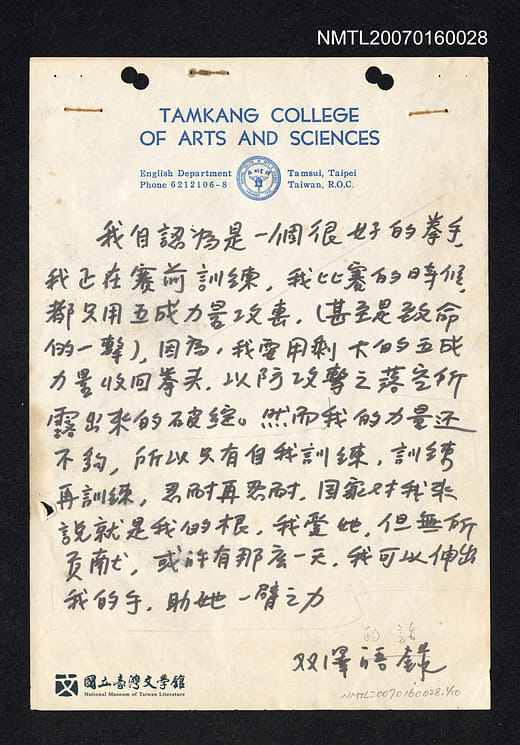 NMTL20070160028
TAMKANG COLLEGE
OF ARTS AND SCIENCES
English Department
Phone 6212106-8
Tamsui, Taipei
Taiwan, R.O.C.
我自認為是一個很好的拳手,
我正在賽前訓練,我比賽的時候,
都只用五成力量攻擊,(甚至是致命
的一擊),因為,我要用剩下的五成
力量收回拳头,以防攻擊之落空所
露出來的破綻。然而我的力量还
不夠,所以只有自我訓練,訓練
再訓練,忍耐再忍耐,国家对我來
說就是我的根,我愛她,但無所
贡献,或許有那么一天,我可以伸出
我的手,助她一臂之力
的話
双澤語錄
國立臺灣文學館
National Museum of Taiwan Literature
NMTL20070160028.1/10